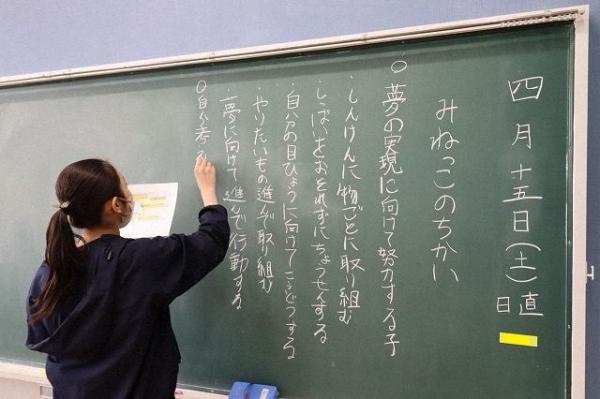 四月十五日(土)
日直
みねっこのちかい
○夢の実現に向けて努力する子
・しんけんに物ごとに取り組む
・しっぱいをおそれずにちょうせんする
・自分の目ひょうに向けてこうどうする
・やりたいもの進んで取り組む
・夢に向けて進んで行動する
○自分で考え